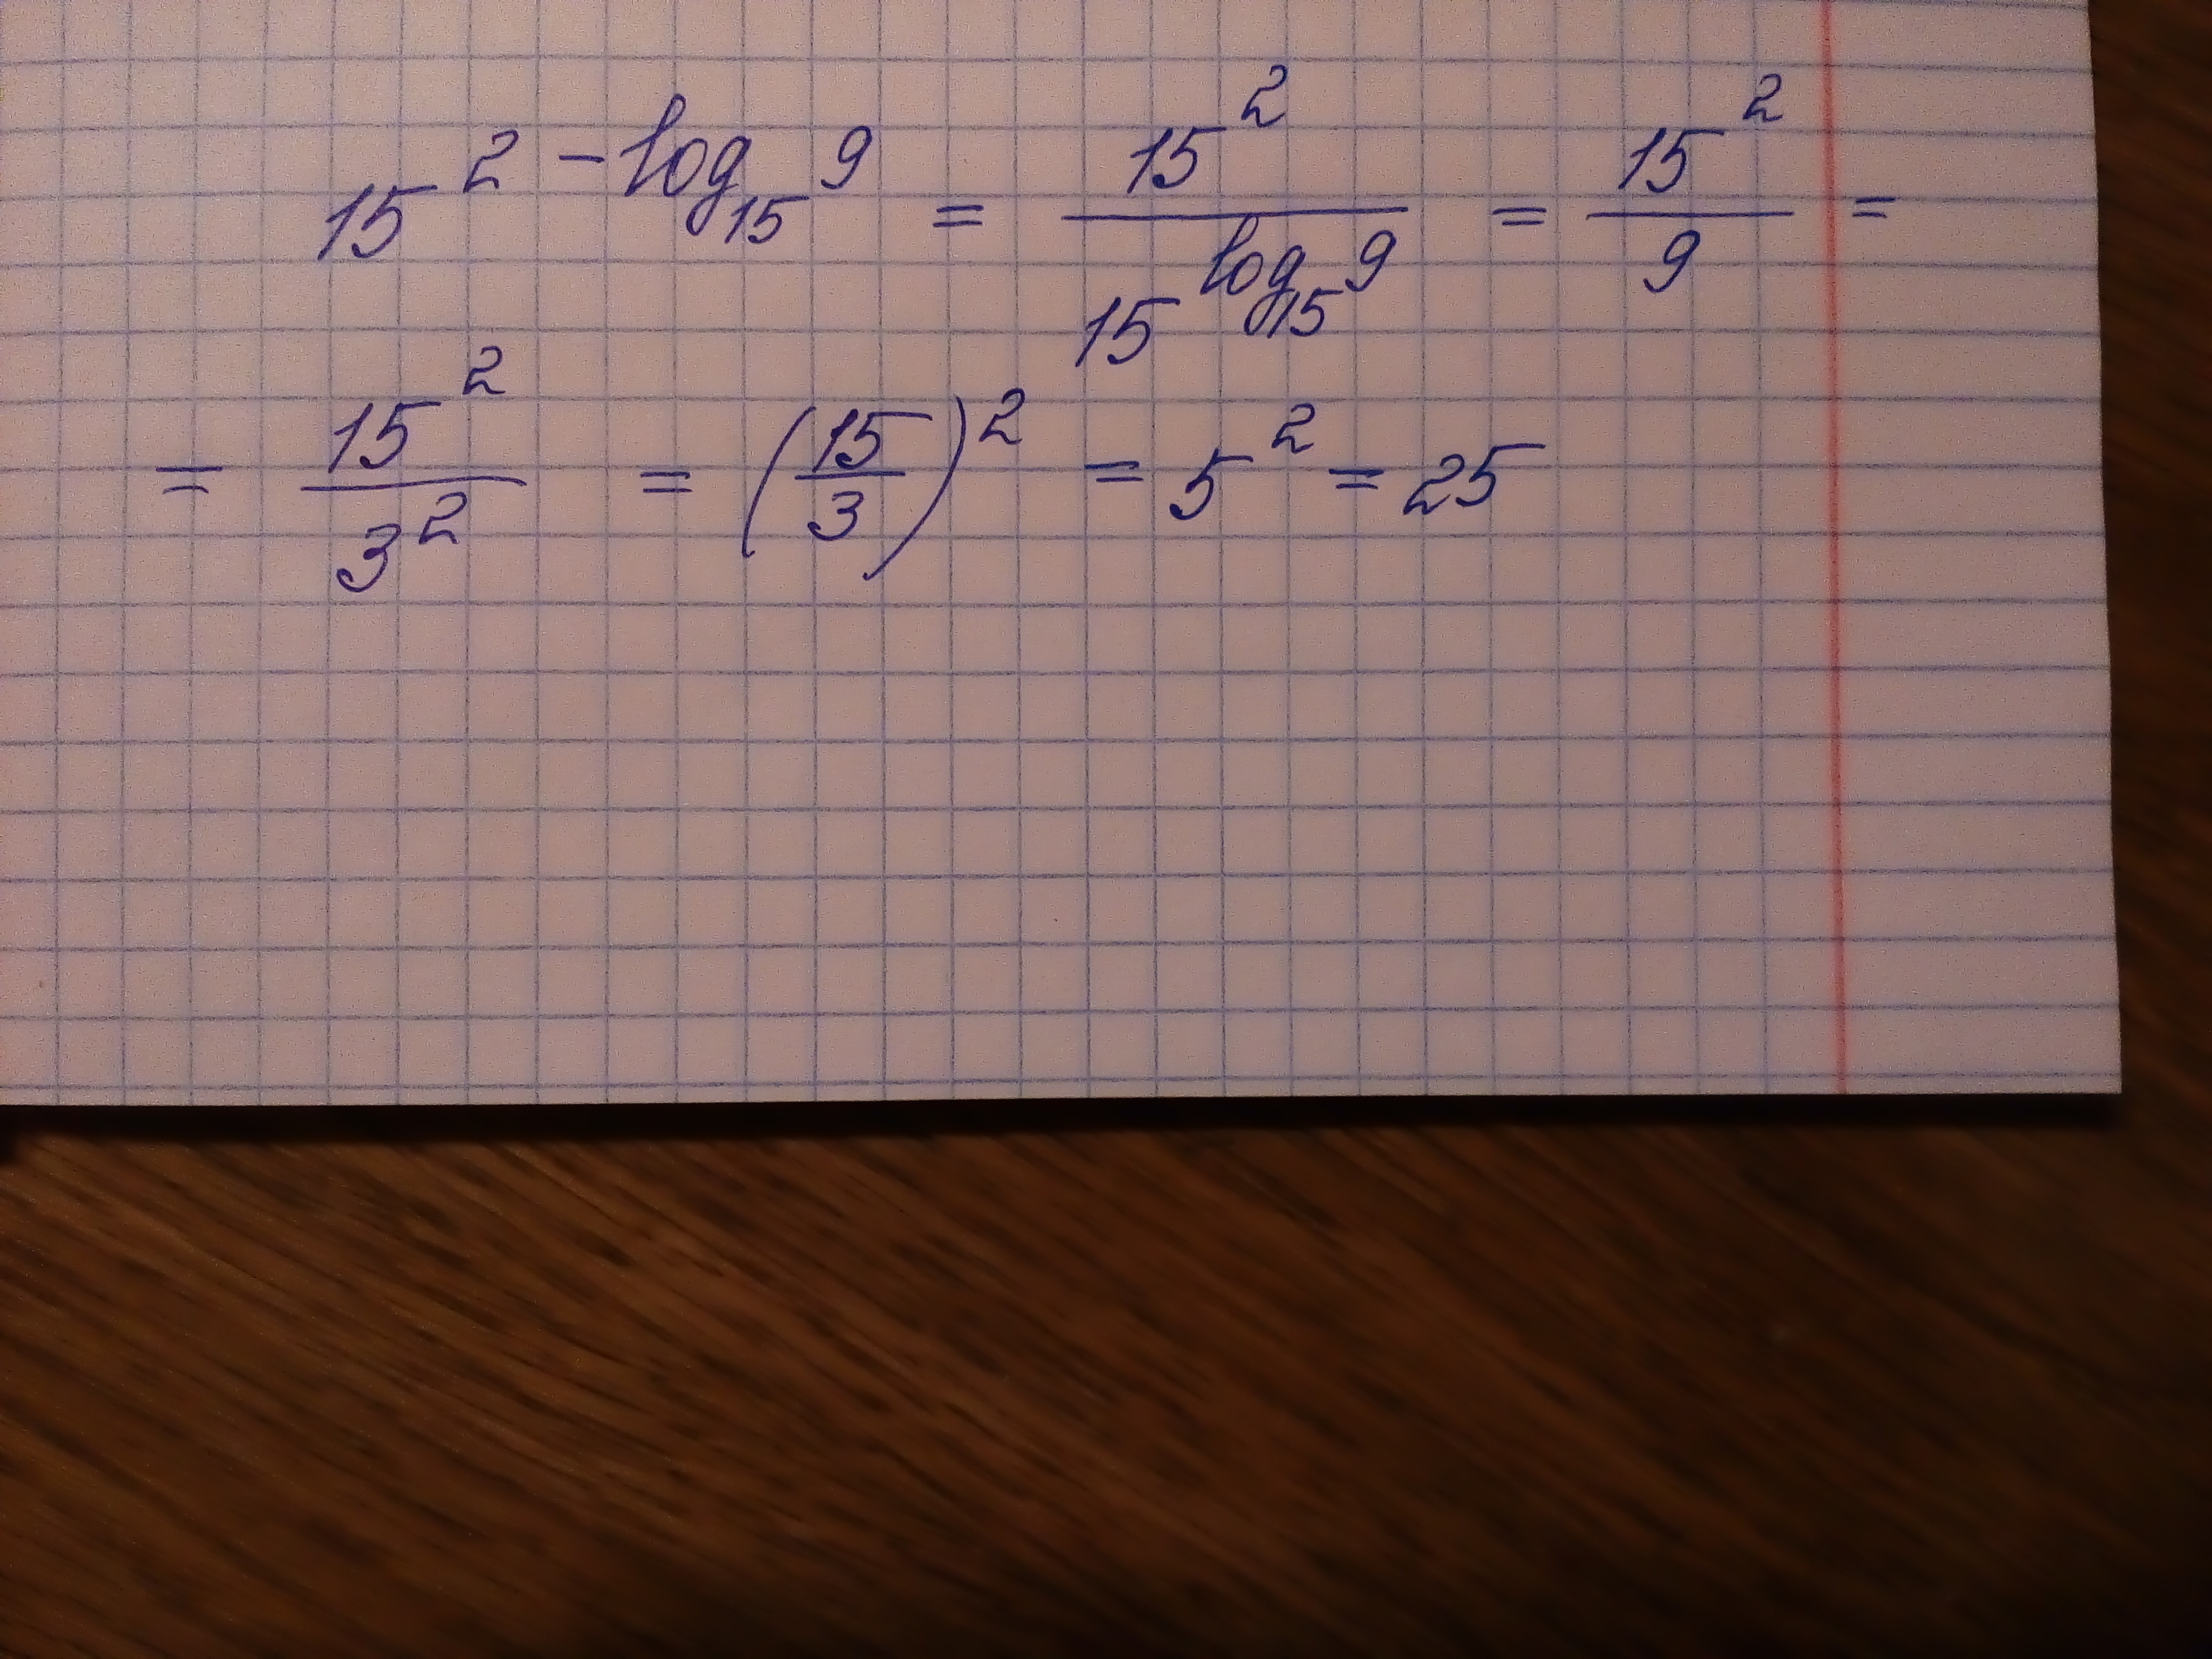 15^{2 - log_{15} 9} = \frac{15^2}{15^{log_{15} 9}} = \frac{15^2}{9} =
= \frac{15^2}{3^2} = (\frac{15}{3})^2 = 5^2 = 25